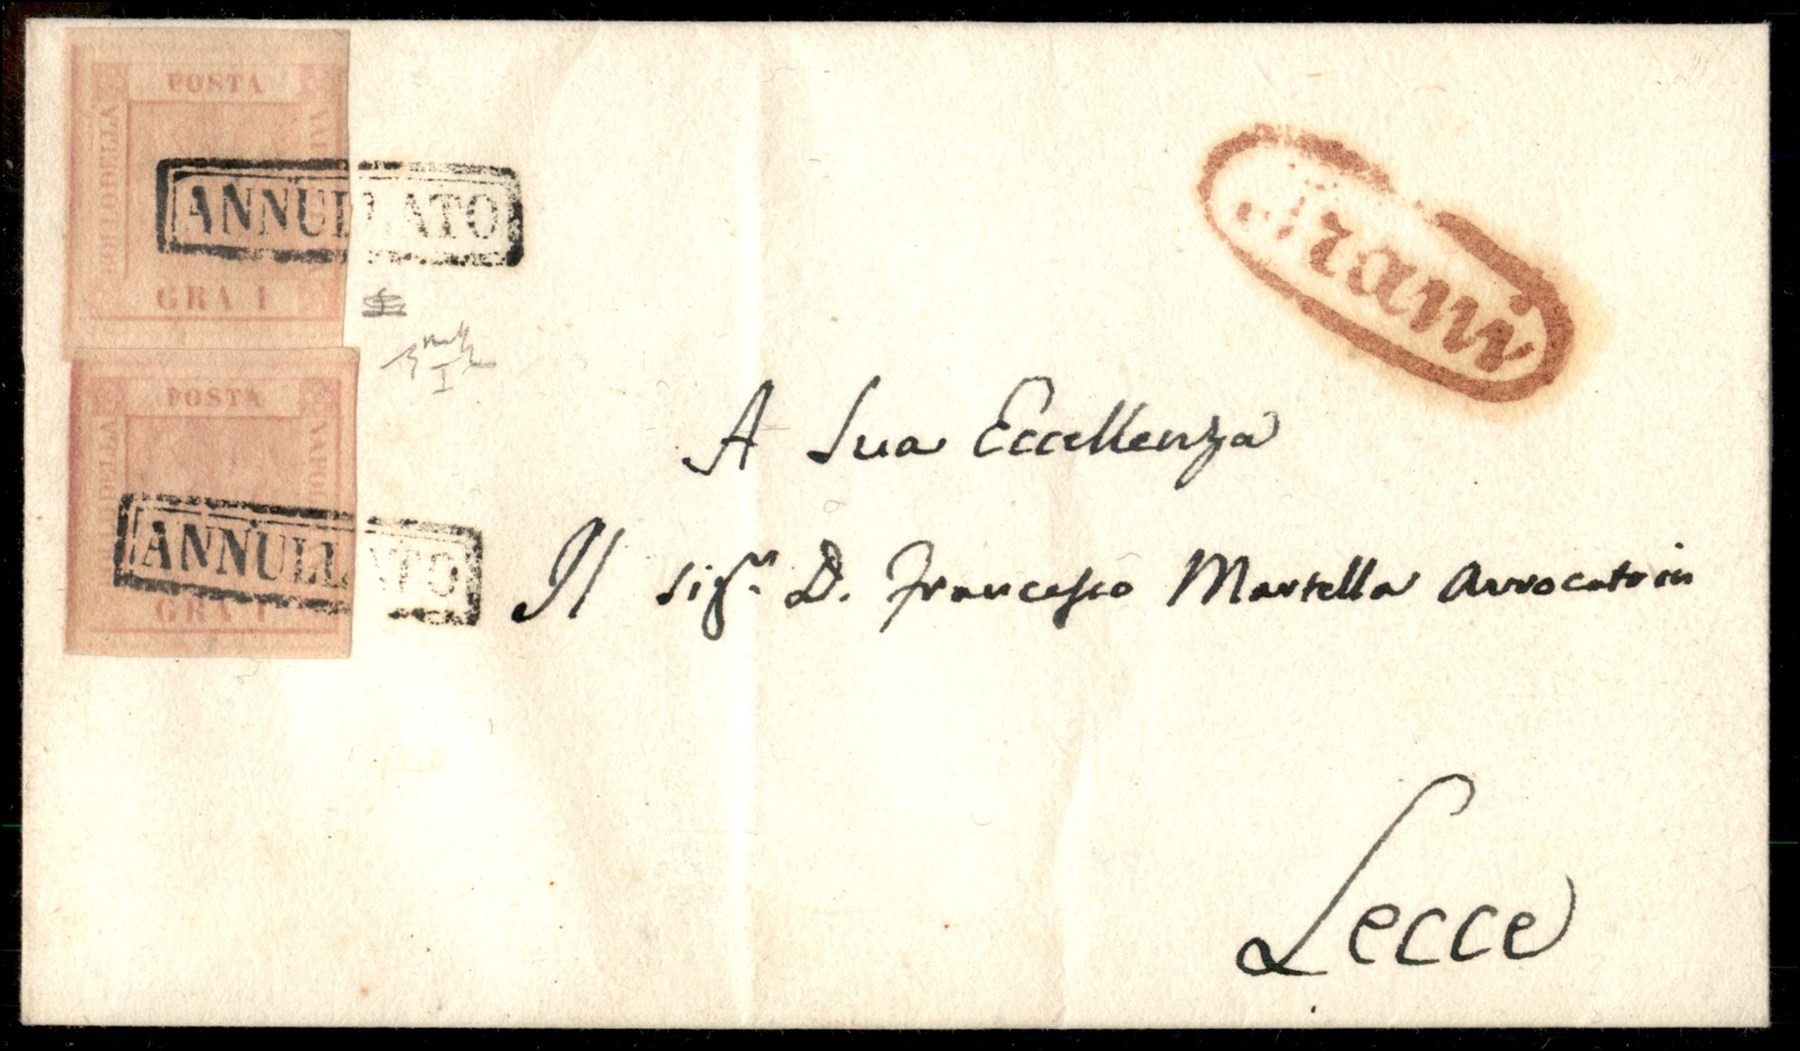 POSTA
BOLLO DELLA
NAP
GRA 1
ANNULLATO
POSTA
DELLA
NAPOL
GRA 1
ANNULLATO
Trani
A Sua Eccellenza
Il Sigr. D. Francesco Martella Avvocato in
Lecce